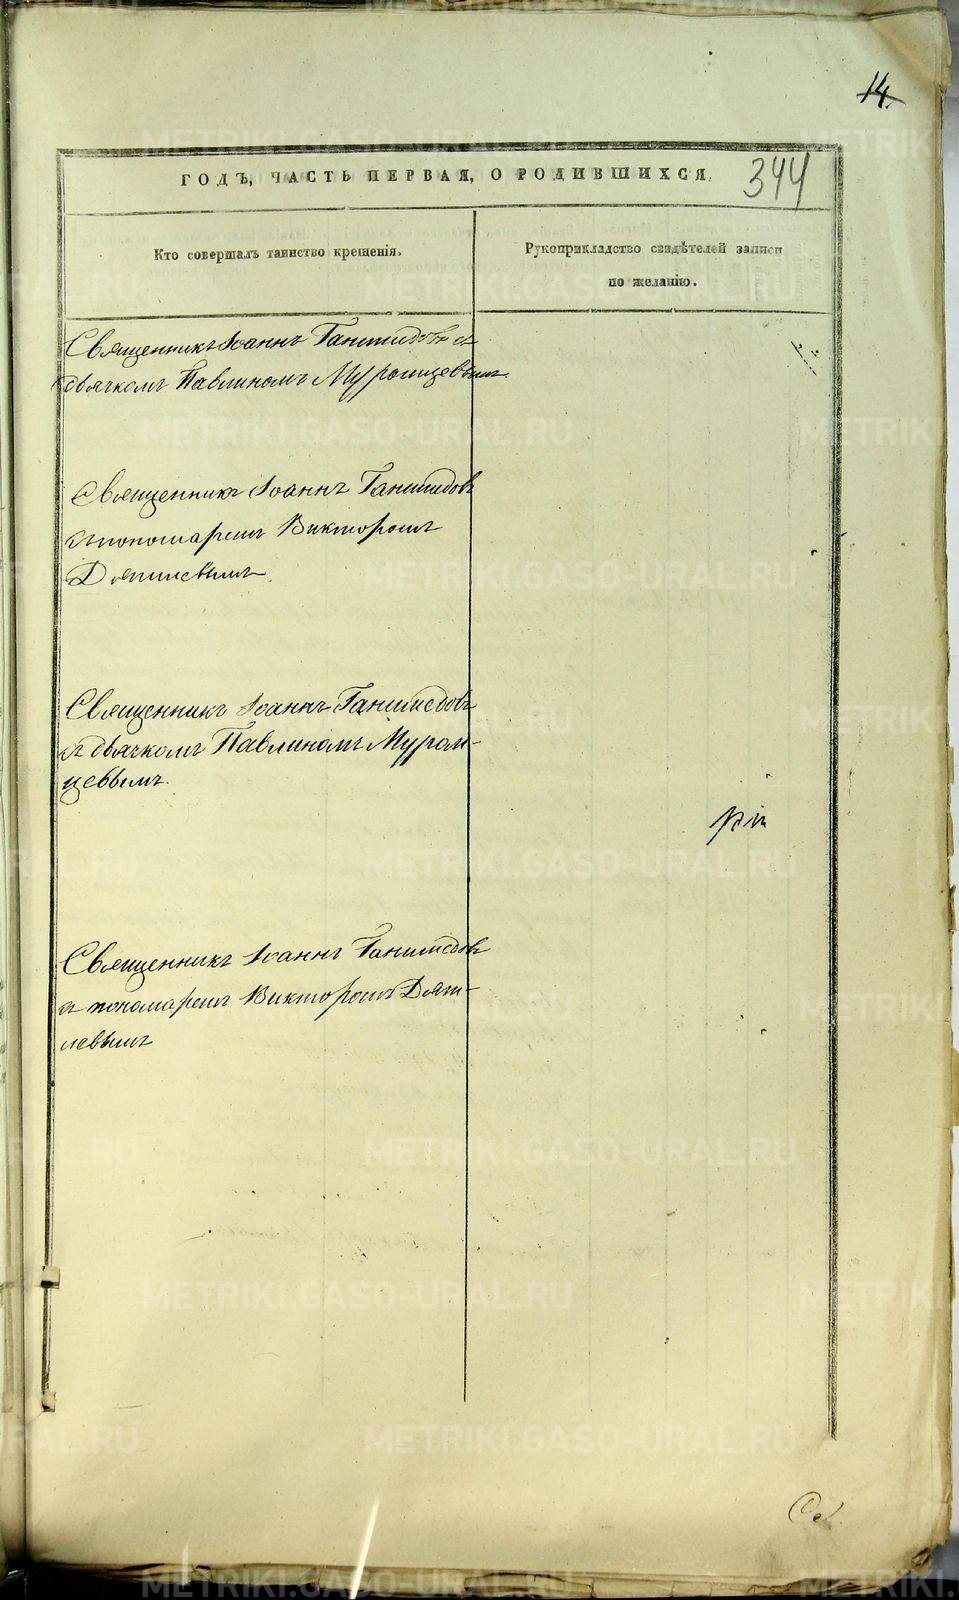 14.
ГОДЪ, ЧАСТЬ ПЕРВАЯ, О РОДИВШИХСЯ.
344
Кто совершалъ таинство крещенія.
Рукоприкладство свидѣтелей записи
по желанію.
Священникъ Іоаннъ Ганимедовъ съ
дьячкомъ Павлиномъ Муромцевымъ
Священникъ Іоаннъ Ганимедовъ
съ пономаремъ Викторомъ
Дягилевымъ.
Священникъ Іоаннъ Ганимедовъ
съ дьячкомъ Павлиномъ Муром-
цевымъ.
Священникъ Іоаннъ Ганимедовъ
съ пономаремъ Викторомъ Дяги-
левымъ
Се
METRIKI.GASO-URAL.RU